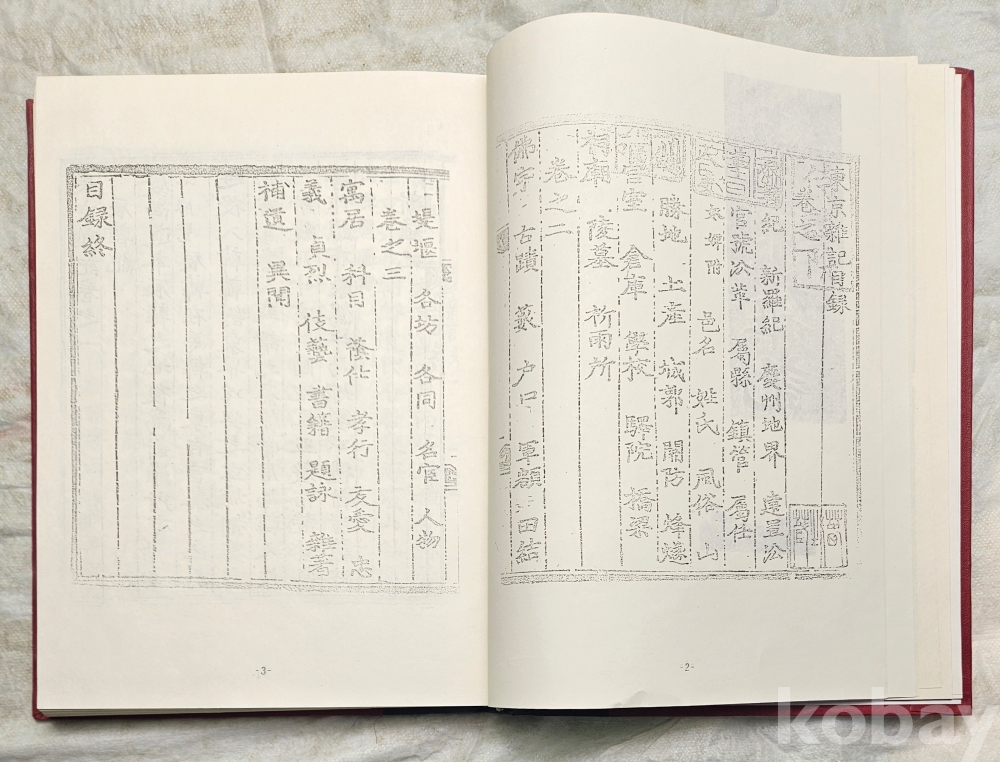 東京雜記目錄
卷之一
紀 新羅紀 慶州地界 建置沿
官號沿革 屬縣 鎮管 屬任
袁婢附 邑名 姓氏 風俗 山
川 勝地 土産 城郭 關防 烽燧
宮室 倉庫 學校 驛院 橋梁
祠廟 陵墓 祈雨所
卷之二
佛宇 古蹟 藪 戶口 軍額 田結
堤堰 各坊 各同 名宦 人物
卷之三
寓居 科目 蔭仕 孝行 友愛 忠
義 貞烈 伎藝 書籍 題詠 雜著
補遺 異聞
目録終
-3-
-2-
kobay